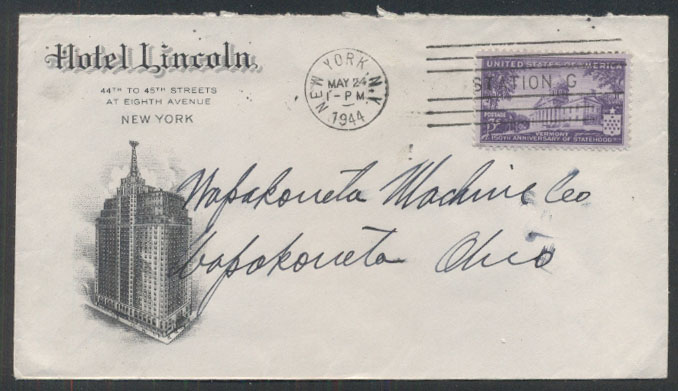 Hotel Lincoln
44TH TO 45TH STREETS
AT EIGHTH AVENUE
NEW YORK
NEW YORK, N.Y.
MAY 24
1-PM
1944
STATION G
UNITED STATES OF AMERICA
POSTAGE
3¢
VERMONT
150TH ANNIVERSARY OF STATEHOOD
Wapakoneta Machine Co
Wapakoneta Ohio